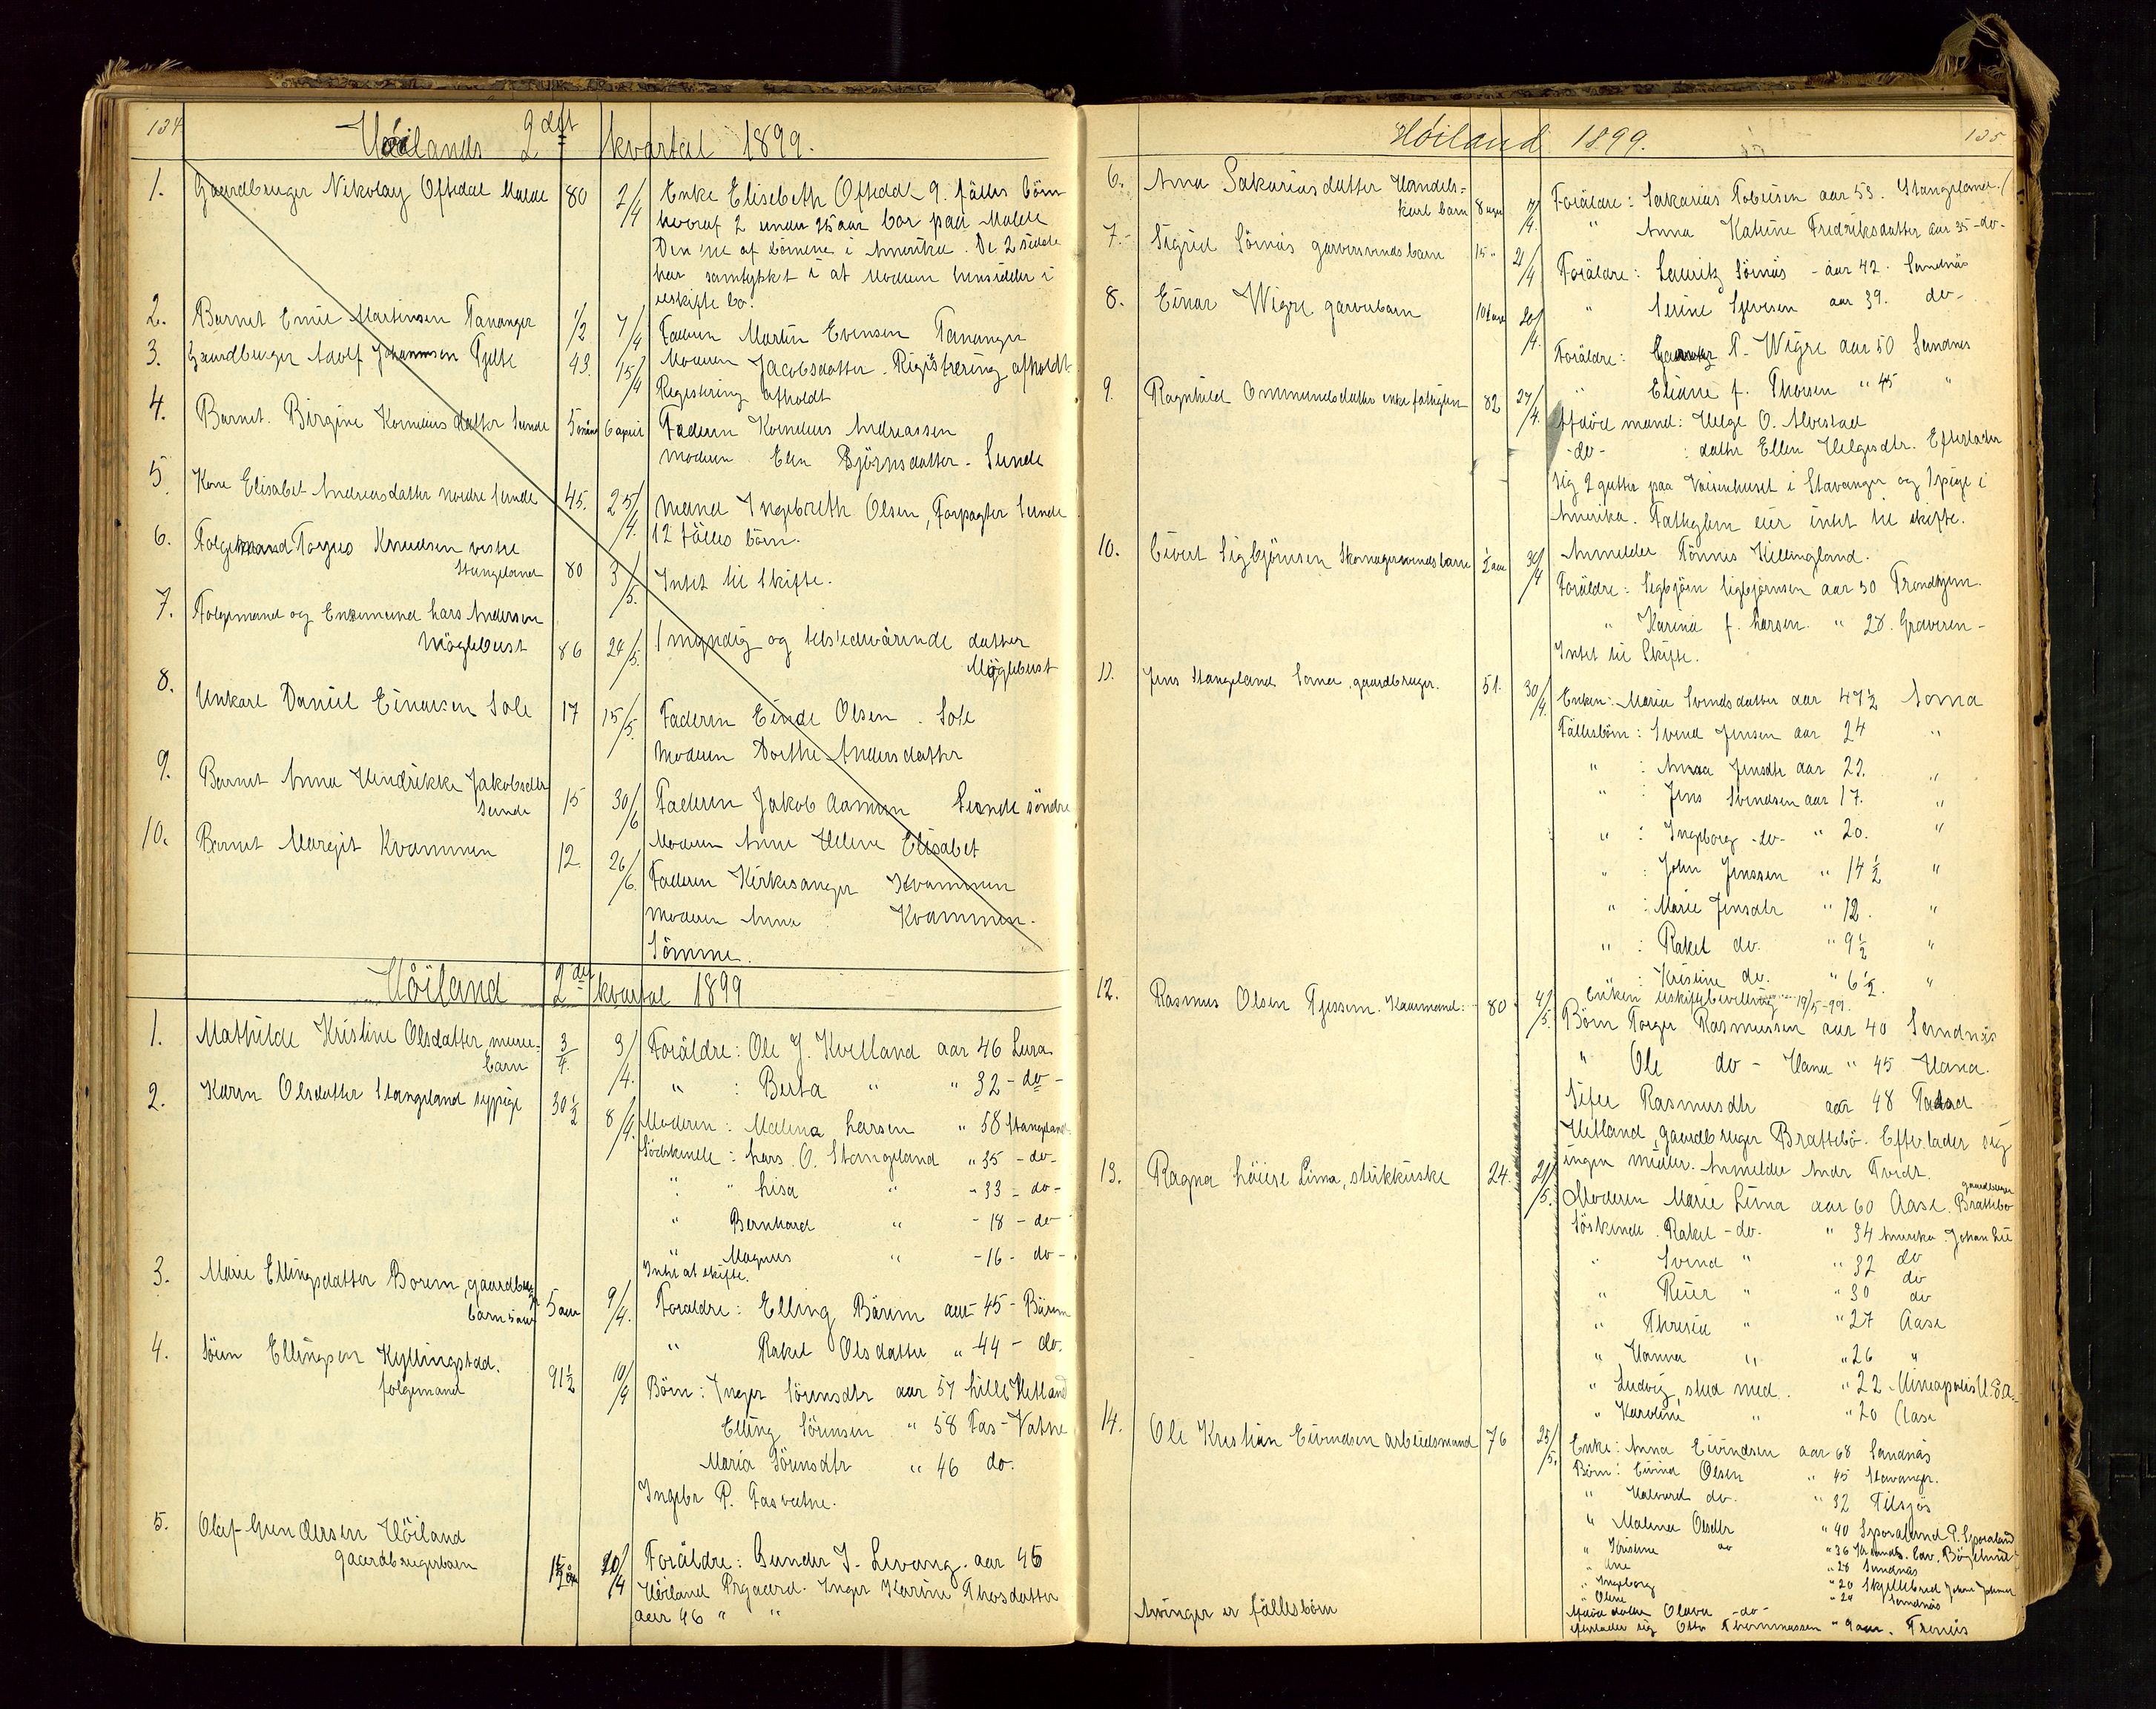 134
Höilands 2det kvartal 1899.
1. Gaardbruger Nikolay Oftedal Malde 80 2/4 Enke Elisebeth Oftedal 9. fälles börn
hvoraf 2 under 25 aar bor paa Malde
Den ene af börnene i Amerika. De 2 sidste
har samtykket i at Moderen hensidder i
uskifte bo.
2. Barnet Emil Martinsen Tananger 1/2 7/4 Faderen Martin Evensen Tananger
3. Gaardbruger Adolf Johannesen Tjelte 43. 15/4 Moderen Jacobsdatter. Registrering afholdt
Registrering afholdt
4. Barnet. Birgine Kornelius datter Sunde 5 6 april Faderen Kornelius Andreassen
Moderen Elen Björnsdatter. Sunde
5. Kone Elisabet Andreasdatter nordre Sunde 45. 25/4. Mand Ingebreth Olsen, Forpagter Sunde
12 fälles börn.
6. Folgemand Torgers Knudsen vestre
Stangeland 80 3/5. Intet til Skifte.
7. Folgemand og Enkemand Lars Andersen
Möglebust 86 24/5. 1 myndig og tilstedevärende datter
Möglebust
8. Unkarl Daniel Einarsen Sole 17 15/5. Faderen Einde Olsen. Sole
Moderen Dorthe Andersdatter
9. Barnet Anna Hendrikke Jakobsdtr
Sunde 15 30/6 Faderen Jakob Aamun Sunde söndre
Moderen Anne Helene Elisabet
10. Barnet Margit Kvammen 12. 26/6. Faderen Kirkesanger Kvammen
Moderen Anna Kvammen.
Sömme.
Höiland 2det kvartal 1899
1. Mathilde Kristine Olsdatter murer-
barn 3/4. 3/4. Foräldre: Ole J. Kvelland aar 46 Lura
" : Berta " " 32 - do -
2. Karen Olsdatter Stangeland sypige 30 1/2 8/4. Moderen: Malena Larsen " 58 Stangeland
Södskende: Lars. O. Stangeland " 35 - do -
" " Lisa " " 33 - do -
" Bernhard " - 18 - do -
" Magnus " - 16 - do -
Intet at skifte.
3. Marie Ellingsdatter Borem, gaardbrug
barn 5 aar 5 aar 9/4. Foräldre: Elling Bärem aar 45 - Bärem
" Rakel Olsdatter " 44 - do.
4. Sören Ellingsen Kyllingstad.
folgemand 91 1/2 10/4 Börn: Inger Sörensdtr aar 57 Lille Hetland
Elling Sörensen " 58 Fas-Vatne
Maria Sörensdtr " 46 do.
Ingebr P. Fasvatne.
5. Olaf Gundersen Höiland
gaardbrugerbarn 20/4 Foräldre: Gunder J. Levang. aar 46
Höiland Prgaard. Inger Karine Thosdatter
aar 46 " "
Höiland 1899.
135
6. Anna Sakariasdatter Handels-
karl barn 8 uger 17/4. Foräldre: Sakarias Tobiesen aar 53. Stangeland.
" Anna Katrine Fredriksdatter aar 35 - do -
7. Sigrid Sörnäs garversvends barn 15 " 21/4 Foräldre: Lauritz Sörnäs - aar 42. Sandnäs
" Serine Sylvesen aar 39. do -
8. Einar Wigre garverbarn 20/4. Foräldre: P. Wigre aar 50 Sandnes
" Eliane f. Thorsen " 45 "
9. Ragnhild Ommundsdatter enke fattiglem 82 27/4. Afdöd mand: Helge O. Alvestad
- do - : datter Ellen Helgesdtr. Efterlader
sig 2 gutter paa Vaisenhuset i Stavanger og 1 pige i
Amerika. Fattiglem eier intet til skifte.
Anmelder Tönnes Killingland.
10. Eivert Sigbjörnsen Skomagersvends barn 1/2 aar 30/4 Foräldre: Sigbjörn Sigbjörnsen aar 30 Trondhjem.
" Karina f. Larsen. " 28. Graveren -
Intet til Skifte.
11. Jens Stangeland Soma, gaardbruger. 51. 30/4. Enken: Maria Svendsdatter aar 47 1/2 Soma
Fällesbörn: Svend Jensen aar 24 "
" : Anna Jensdtr aar 22. "
" : Jens Svendsen aar 17. "
" : Ingeborg - do - " 20. "
" : John Jenssen " 14 1/2 "
" : Marie Jensdtr " 12. "
" : Rakel do. " 9 1/2 "
" : Kristine do. " 6 1/2. "
Enken uskiftebevilling 19/5-99.
12. Rasmus Olsen Tjessem. Kaarmand. 80. 4/5. Börn Torger Rasmussen aar 40 Sandnäs
" Ole do - Hana " 45 Hana.
Sifer Rasmusdtr aar 48
Hetland, gaardbruger Brattebö. Efterlader sig
ingen midler. Anmelder Andr Tvedt.
13. Ragna Löiise Lima, strikkerske 24. 21/5. Moderen Marie Lima aar 60 Aase. gaardbruger Brattebö
Söskende. Rakel - do. " 34 Amerika Johan Lie
" Svend " " 32 do
" Reier " " 30 do
do
" Thresia " " 27 Aase
" Hanna " " 26 "
" Ludvig, stud med. " 22 Mineapolis U.S.A.
" Karoline " " 20 Aase
14. Ole Kristian Eivindsen arbeidsmand 76 25/5. Enke: Anna Eivindsen aar 68 Sandnäs
Börn: Eivind Olsen " 45 Stavanger.
" Halvard do. " 32 Tilsjös
" Malena Olsdtr " 40 Sporaland P. Sporaland
" Kristine do " 36
" Ane " 28 Sandnäs
" Ingeborg " 20
" Oline " 24 Sandnäs
Afdöd datter Olava - do -
efterlader sig Otto Thommassen " 9 aar.
Arvinger er fällesbörn